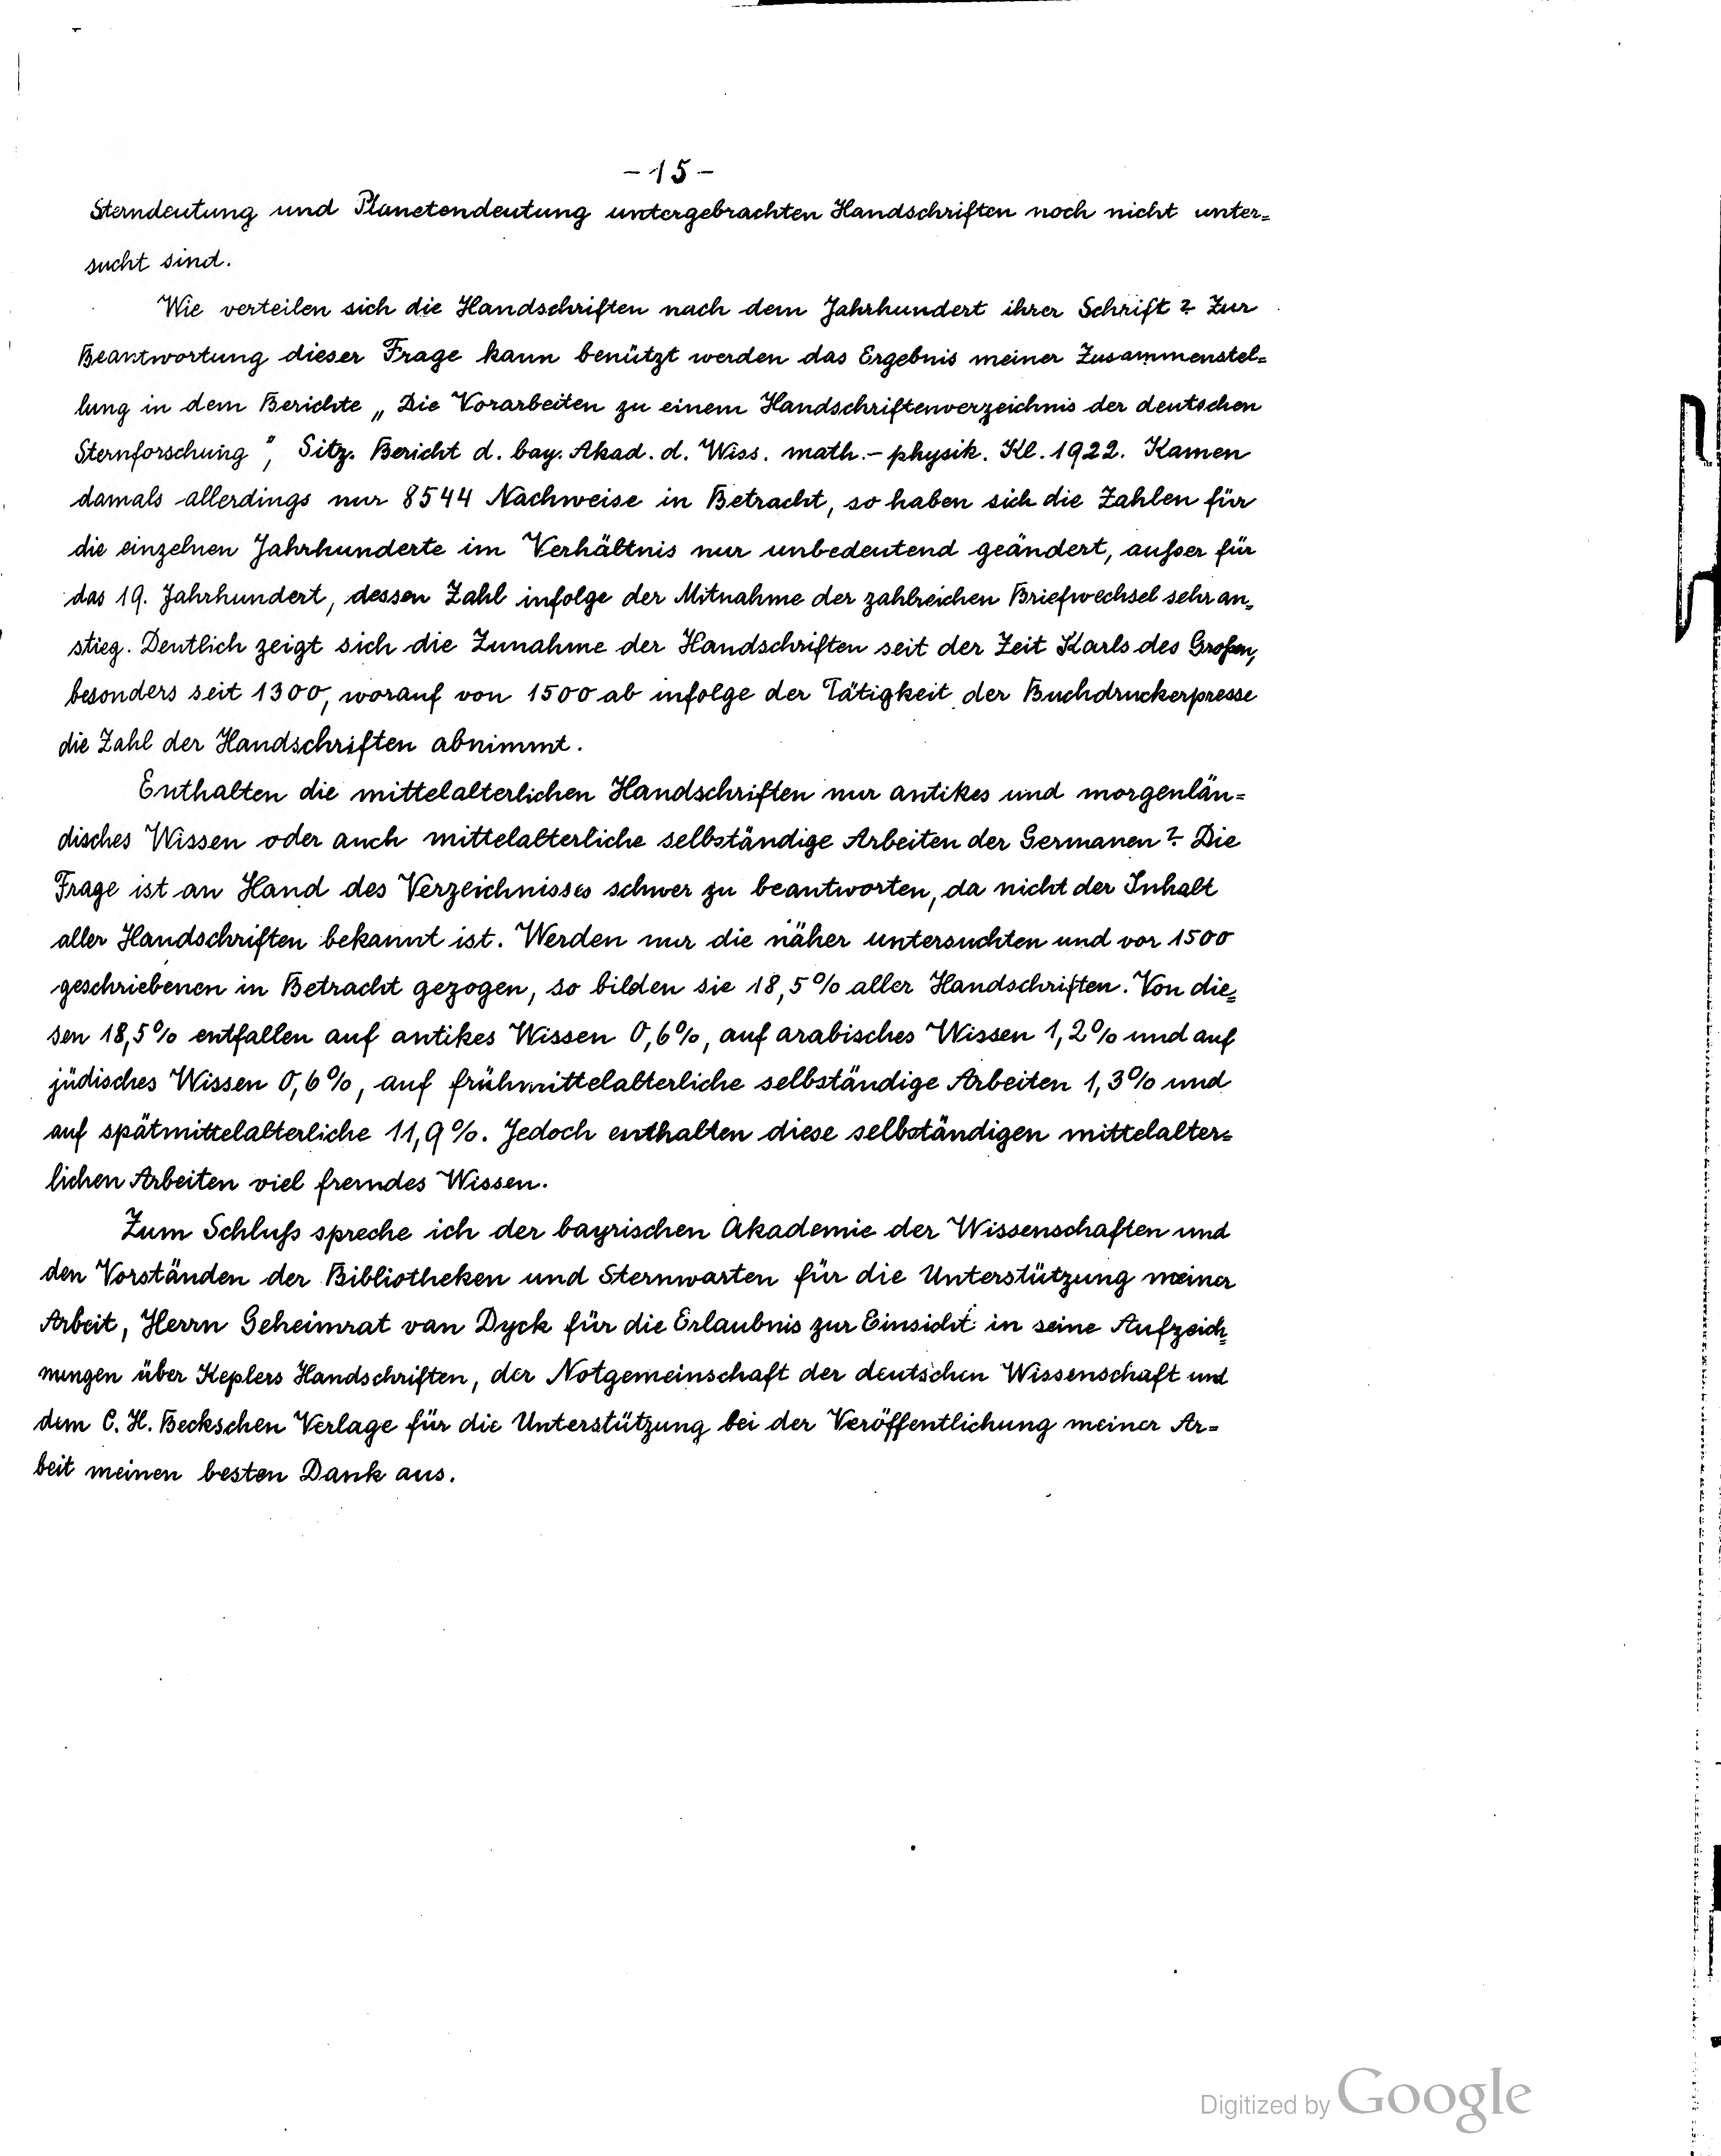 - 15 -
Sterndeutung und Planetendeutung untergebrachten Handschriften noch nicht unter=
sucht sind.
Wie verteilen sich die Handschriften nach dem Jahrhundert ihrer Schrift? Zur
Beantwortung dieser Frage kann benützt werden das Ergebnis meiner Zusammenstel=
lung in dem Berichte „Die Vorarbeiten zu einem Handschriftenverzeichnis der deutschen
Sternforschung", Sitz. Bericht d. bay. Akad. d. Wiss. math.-physik. Kl. 1922. Kamen
damals allerdings nur 8544 Nachweise in Betracht, so haben sich die Zahlen für
die einzelnen Jahrhunderte im Verhältnis nur unbedeutend geändert, außer für
das 19. Jahrhundert, dessen Zahl infolge der Mitnahme der zahlreichen Briefwechsel sehr an=
stieg. Deutlich zeigt sich die Zunahme der Handschriften seit der Zeit Karls des Großen,
besonders seit 1300, worauf von 1500 ab infolge der Tätigkeit der Buchdruckerpresse
die Zahl der Handschriften abnimmt.
Enthalten die mittelalterlichen Handschriften nur antikes und morgenlän=
disches Wissen oder auch mittelalterliche selbständige Arbeiten der Germanen? Die
Frage ist an Hand des Verzeichnisses schwer zu beantworten, da nicht der Inhalt
aller Handschriften bekannt ist. Werden nur die näher untersuchten und vor 1500
geschriebenen in Betracht gezogen, so bilden sie 18,5% aller Handschriften. Von die=
sen 18,5% entfallen auf antikes Wissen 0,6%, auf arabisches Wissen 1,2% und auf
jüdisches Wissen 0,6%, auf frühmittelalterliche selbständige Arbeiten 1,3% und
auf spätmittelalterliche 11,9%. Jedoch enthalten diese selbständigen mittelalter=
lichen Arbeiten viel fremdes Wissen.
Zum Schluß spreche ich der bayrischen Akademie der Wissenschaften und
den Vorständen der Bibliotheken und Sternwarten für die Unterstützung meiner
Arbeit, Herrn Geheimrat van Dyck für die Erlaubnis zur Einsicht in seine Aufzeich=
nungen über Keplers Handschriften, der Notgemeinschaft der deutschen Wissenschaft und
dem C. H. Beckschen Verlage für die Unterstützung bei der Veröffentlichung meiner Ar=
beit meinen besten Dank aus.
Digitized by Google